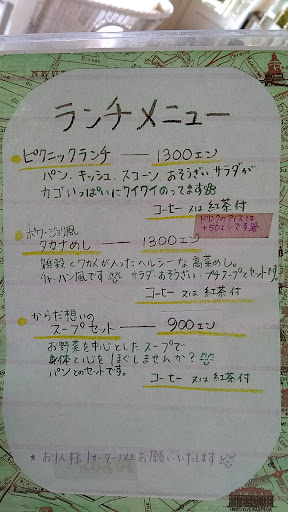 ランチメニュー
ピクニックランチ ── 1300エン
パン、キッシュ、スコーン、おそうざい、サラダが
カゴいっぱいにワイワイのってます
コーヒー 又は 紅茶付
ドリンクのアイスは
+50エンです
タカナめし ── 1300エン
雑穀とワカメが入ったヘルシーな高菜めし。
チャーハン風です サラダ・おそうざい・プチスープとセットです。
コーヒー 又は 紅茶付
からだ想いの
スープセット ── 900エン
お野菜を中心としたスープで
身体と心をほぐしませんか?
パンとのセットです。
コーヒー 又は 紅茶付
* お1人様 1オーダー以上お願いいたします